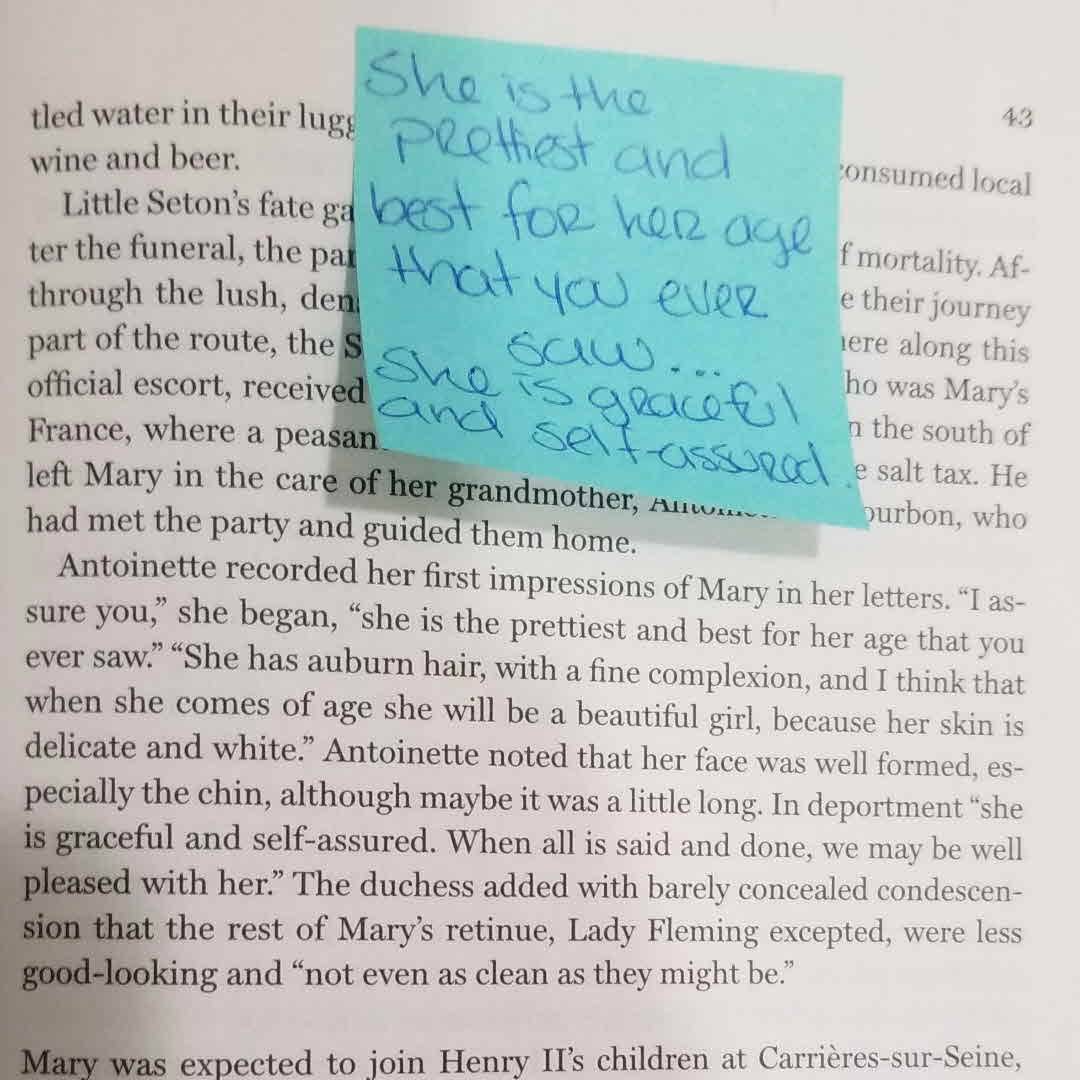 She is the
prettiest and
best for her age
that you ever
saw...
She is graceful
and self-assured.
43
tled water in their lugg
consumed local
wine and beer.
Little Seton's fate ga
f mortality. Af-
ter the funeral, the par
e their journey
through the lush, den
here along this
part of the route, the S
ho was Mary's
official escort, received
n the south of
France, where a peasan
e salt tax. He
left Mary in the care of her grandmother,
ourbon, who
had met the party and guided them home.
Antoinette recorded her first impressions of Mary in her letters. “I as-
sure you,” she began, “she is the prettiest and best for her age that you
ever saw.” “She has auburn hair, with a fine complexion, and I think that
when she comes of age she will be a beautiful girl, because her skin is
delicate and white.” Antoinette noted that her face was well formed, es-
pecially the chin, although maybe it was a little long. In deportment “she
is graceful and self-assured. When all is said and done, we may be well
pleased with her.” The duchess added with barely concealed condescen-
sion that the rest of Mary's retinue, Lady Fleming excepted, were less
good-looking and “not even as clean as they might be.”
Mary was expected to join Henry II's children at Carrières-sur-Seine,